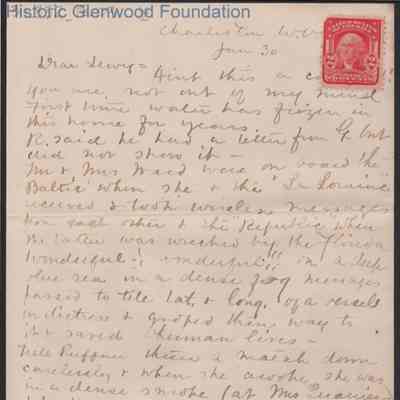 Historic Glenwood Foundation
Charleston W. Va
Jan 30
Dear Lewy =
Aint this a
You are not out of my mind
First time water has frozen in
this home for years.
R. said he had a letter from
did not show it —
Mr & Mrs Ward were on board the
Baltic when she & the "La Lorraine"
received & took wireless messages
from each other & the "Republic" when
the latter was wrecked by the Florida
Wonderful! wonderful!! in a deep
blue sea in a dense fog messages
passed to tell Lat. & Long. of a vessel
in distress & groped their way to
it & saved human lives —
Ruffner threw a match down
carelessly & when she awoke she was
in a dense smoke (at Mrs